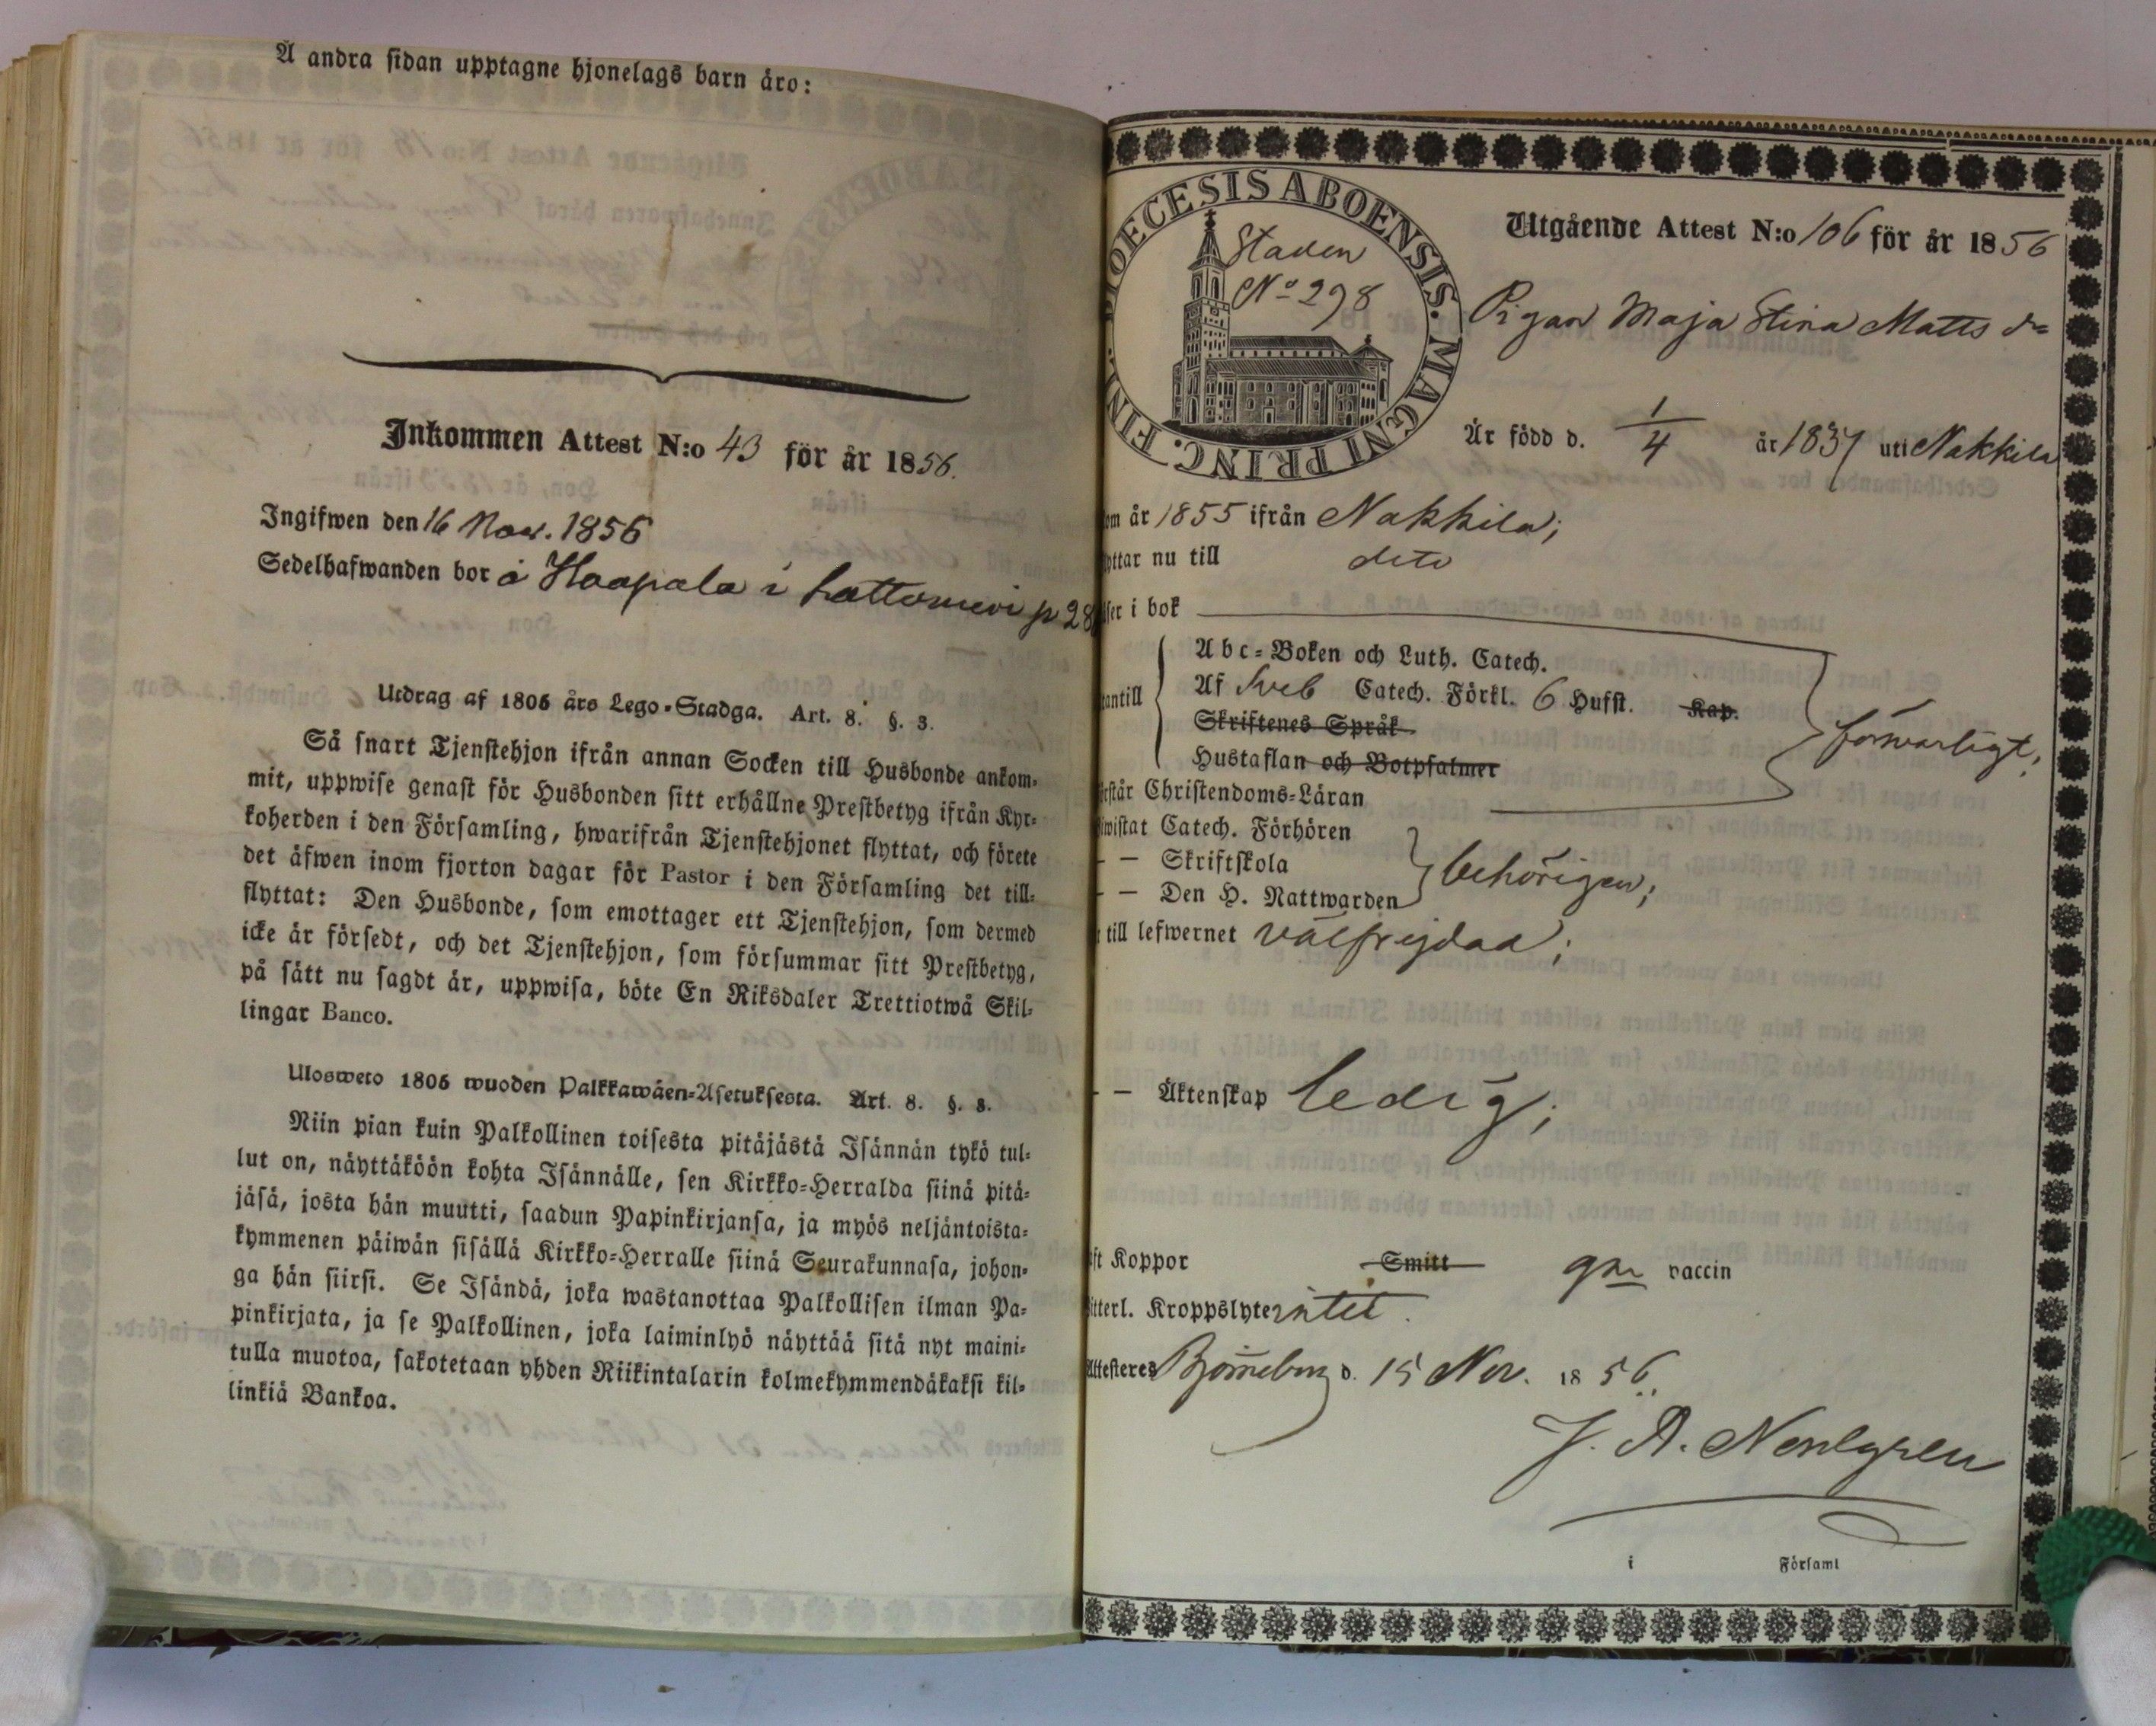 Å andra sidan upptagne hjonelags barn äro:
Inkommen Attest N:o 43 för år 1856.
Ingifwen den 16 Nov. 1856
Sedelhafwanden bor å Haapala i Lattomeri p 28
Utdrag af 1805 års Lego-Stadga. Art. 8. §. 3.
Så snart Tjenstehjon ifrån annan Socken till Husbonde ankom-
mit, uppwise genast för Husbonden sitt erhållne Prestbetyg ifrån Kyr-
koherden i den Församling, hwarifrån Tjenstehjonet flyttat, och förete
det äfwen inom fjorton dagar för Pastor i den Församling det till-
flyttat: Den Husbonde, som emottager ett Tjenstehjon, som dermed
icke är försedt, och det Tjenstehjon, som försummar sitt Prestbetyg,
på sätt nu sagdt är, uppwisa, böte En Riksdaler Trettiotwå Skil-
lingar Banco.
Ulosweto 1805 wuoden Palkkawäen-Asetuksesta. Art. 8. §. 3.
Niin pian kuin Palkollinen toisesta pitäjästä Isännän tykö tul-
lut on, näyttäköön kohta Isännälle, sen Kirkko-Herralda siinä pitä-
jäsä, josta hän muutti, saadun Papinkirjansa, ja myös neljäntoista-
kymmenen päiwän sisällä Kirkko-Herralle siinä Seurakunnasa, johon-
ga hän siirsi. Se Isändä, joka wastanottaa Palkollisen ilman Pa-
pinkirjata, ja se Palkollinen, joka laiminlyö näyttää sitä nyt maini-
tulla muotoa, sakotetaan yhden Riikintalarin kolmekymmendäkaksi kil-
linkiä Bankoa.
DIOECESIS ABOENSIS. MAGNI PRINC. FINL.
Staden
No 298
Utgående Attest N:o 106 för år 1856
Pigan Maja Stina Matts dr
Är född d. 1/4 år 1837 uti Nakkila
om år 1855 ifrån Nakkila;
yttar nu till dito
ser i bok
Abc-Boken och Luth. Catech.
antill Af Sveb Catech. Förkl. 6 Hufst. Kap.
Skriftenes Språk
Hustaflan och Botpsalmer
försvarligt;
rstår Christendoms-Läran
iwistat Catech. Förhören
– – Skriftskola
– – Den H. Nattwarden
behörigen;
till lefwernet välfrejdad;
– – Äktenskap ledig;
ft Koppor Smitt gm vaccin
itterl. Kroppslyte intet.
Attesteres Björneborg d. 15 Nov. 1856.
i Församl